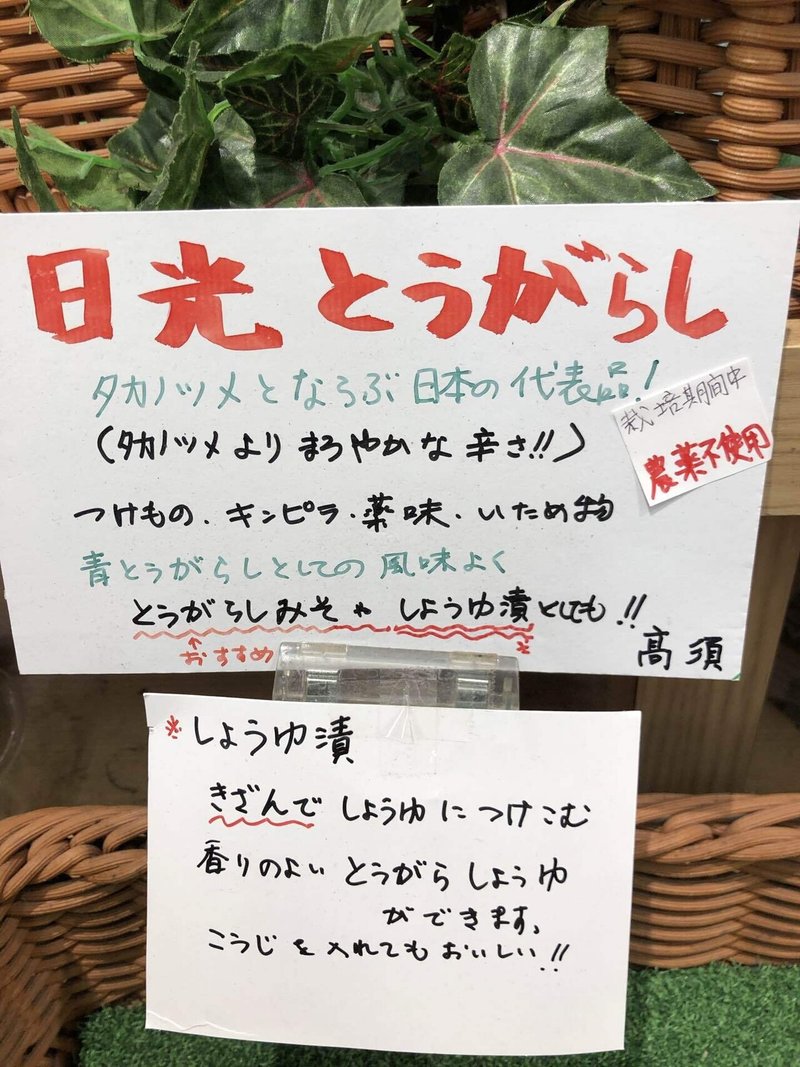 日光とうがらし
タカノツメとならぶ日本の代表品!
(タカノツメよりまろやかな辛さ!!)
栽培期間中
農薬不使用
つけもの・キンピラ・薬味・いため物
青とうがらしとしての風味よく
とうがらしみそやしょうゆ漬としても!!
↑
おすすめ
※
高須
※しょうゆ漬
きざんでしょうゆにつけこむ
香りのよいとうがらしょうゆ
ができます。
こうじを入れてもおいしい!!